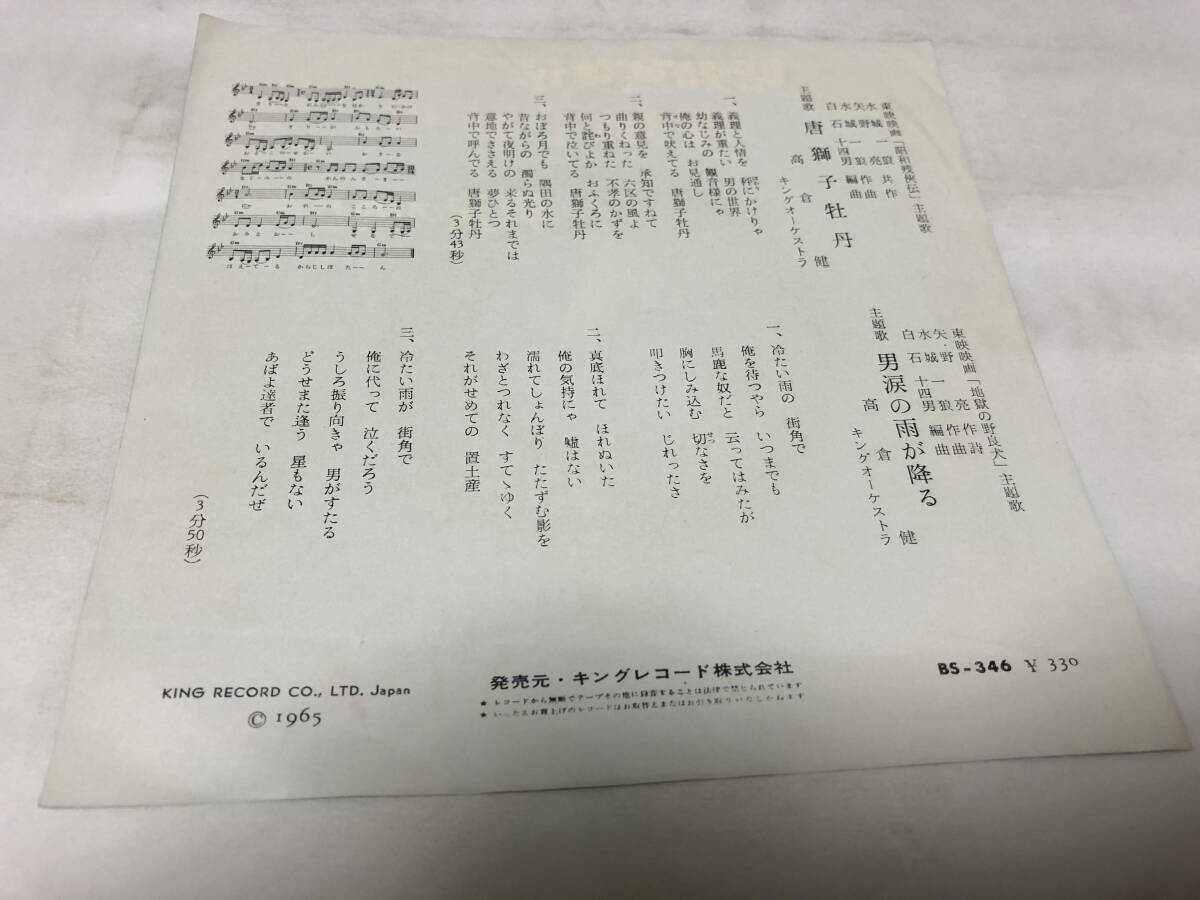 東映映画「昭和残侠伝」主題歌
水城一狼 共作
矢野亮
水城一狼 作曲
白石十四男 編曲
主題歌 唐獅子牡丹
高倉健
キングオーケストラ
一、義理と人情を 秤にかけりゃ
義理が重たい 男の世界
幼なじみの 観音様にゃ
俺の心は お見通し
背中で吠えてる 唐獅子牡丹
二、親の意見を 承知ですねて
曲りくねった 六区の風よ
つもり重ねた 不孝のかずを
何と詫びよか おふくろに
背中で泣いてる 唐獅子牡丹
三、おぼろ月でも 隅田の水に
昔ながらの 濁らぬ光り
やがて夜明けの 来るそれまでは
意地でささえる 夢ひとつ
背中で呼んでる 唐獅子牡丹
(3分43秒)
ほえーてーる からじしぼたーーん
東映映画「地獄の野良犬」主題歌
矢野亮 作詩
水城一狼 作曲
白石十四男 編曲
主題歌 男涙の雨が降る
高倉健
キングオーケストラ
一、冷たい雨の 街角で
俺を待つやら いつまでも
馬鹿な奴だと 云ってはみたが
胸にしみ込む 切なさを
叩きつけたい じれったさ
二、真底ほれて ほれぬいた
俺の気持にゃ 嘘はない
濡れてしょんぼり たたずむ影を
わざとつれなく すてゝゆく
それがせめての 置土産
三、冷たい雨が 街角で
俺に代って 泣くだろう
うしろ振り向きゃ 男がすたる
どうせまた逢う 星もない
あばよ達者で いるんだぜ
(3分50秒)
KING RECORD CO., LTD. Japan
© 1965
発売元・キングレコード株式会社
★ レコードから無断でテープその他に録音することは法律で禁じられています
★ いったんお買上げのレコードはお取替えまたはお引き取りいたしかねます
BS-346 ¥ 330